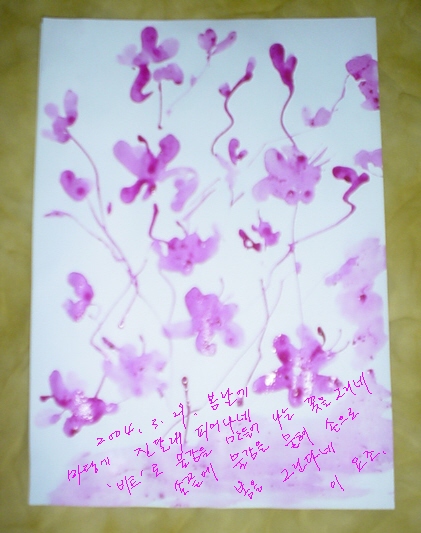 2004. 3. 21. 봄날에
마당에 진달래 피어나네
'비트'로 물감을 만들어 나는 꽃을 그리네
손끝에 물감을 묻혀 손으로
봄을 그린다네
이